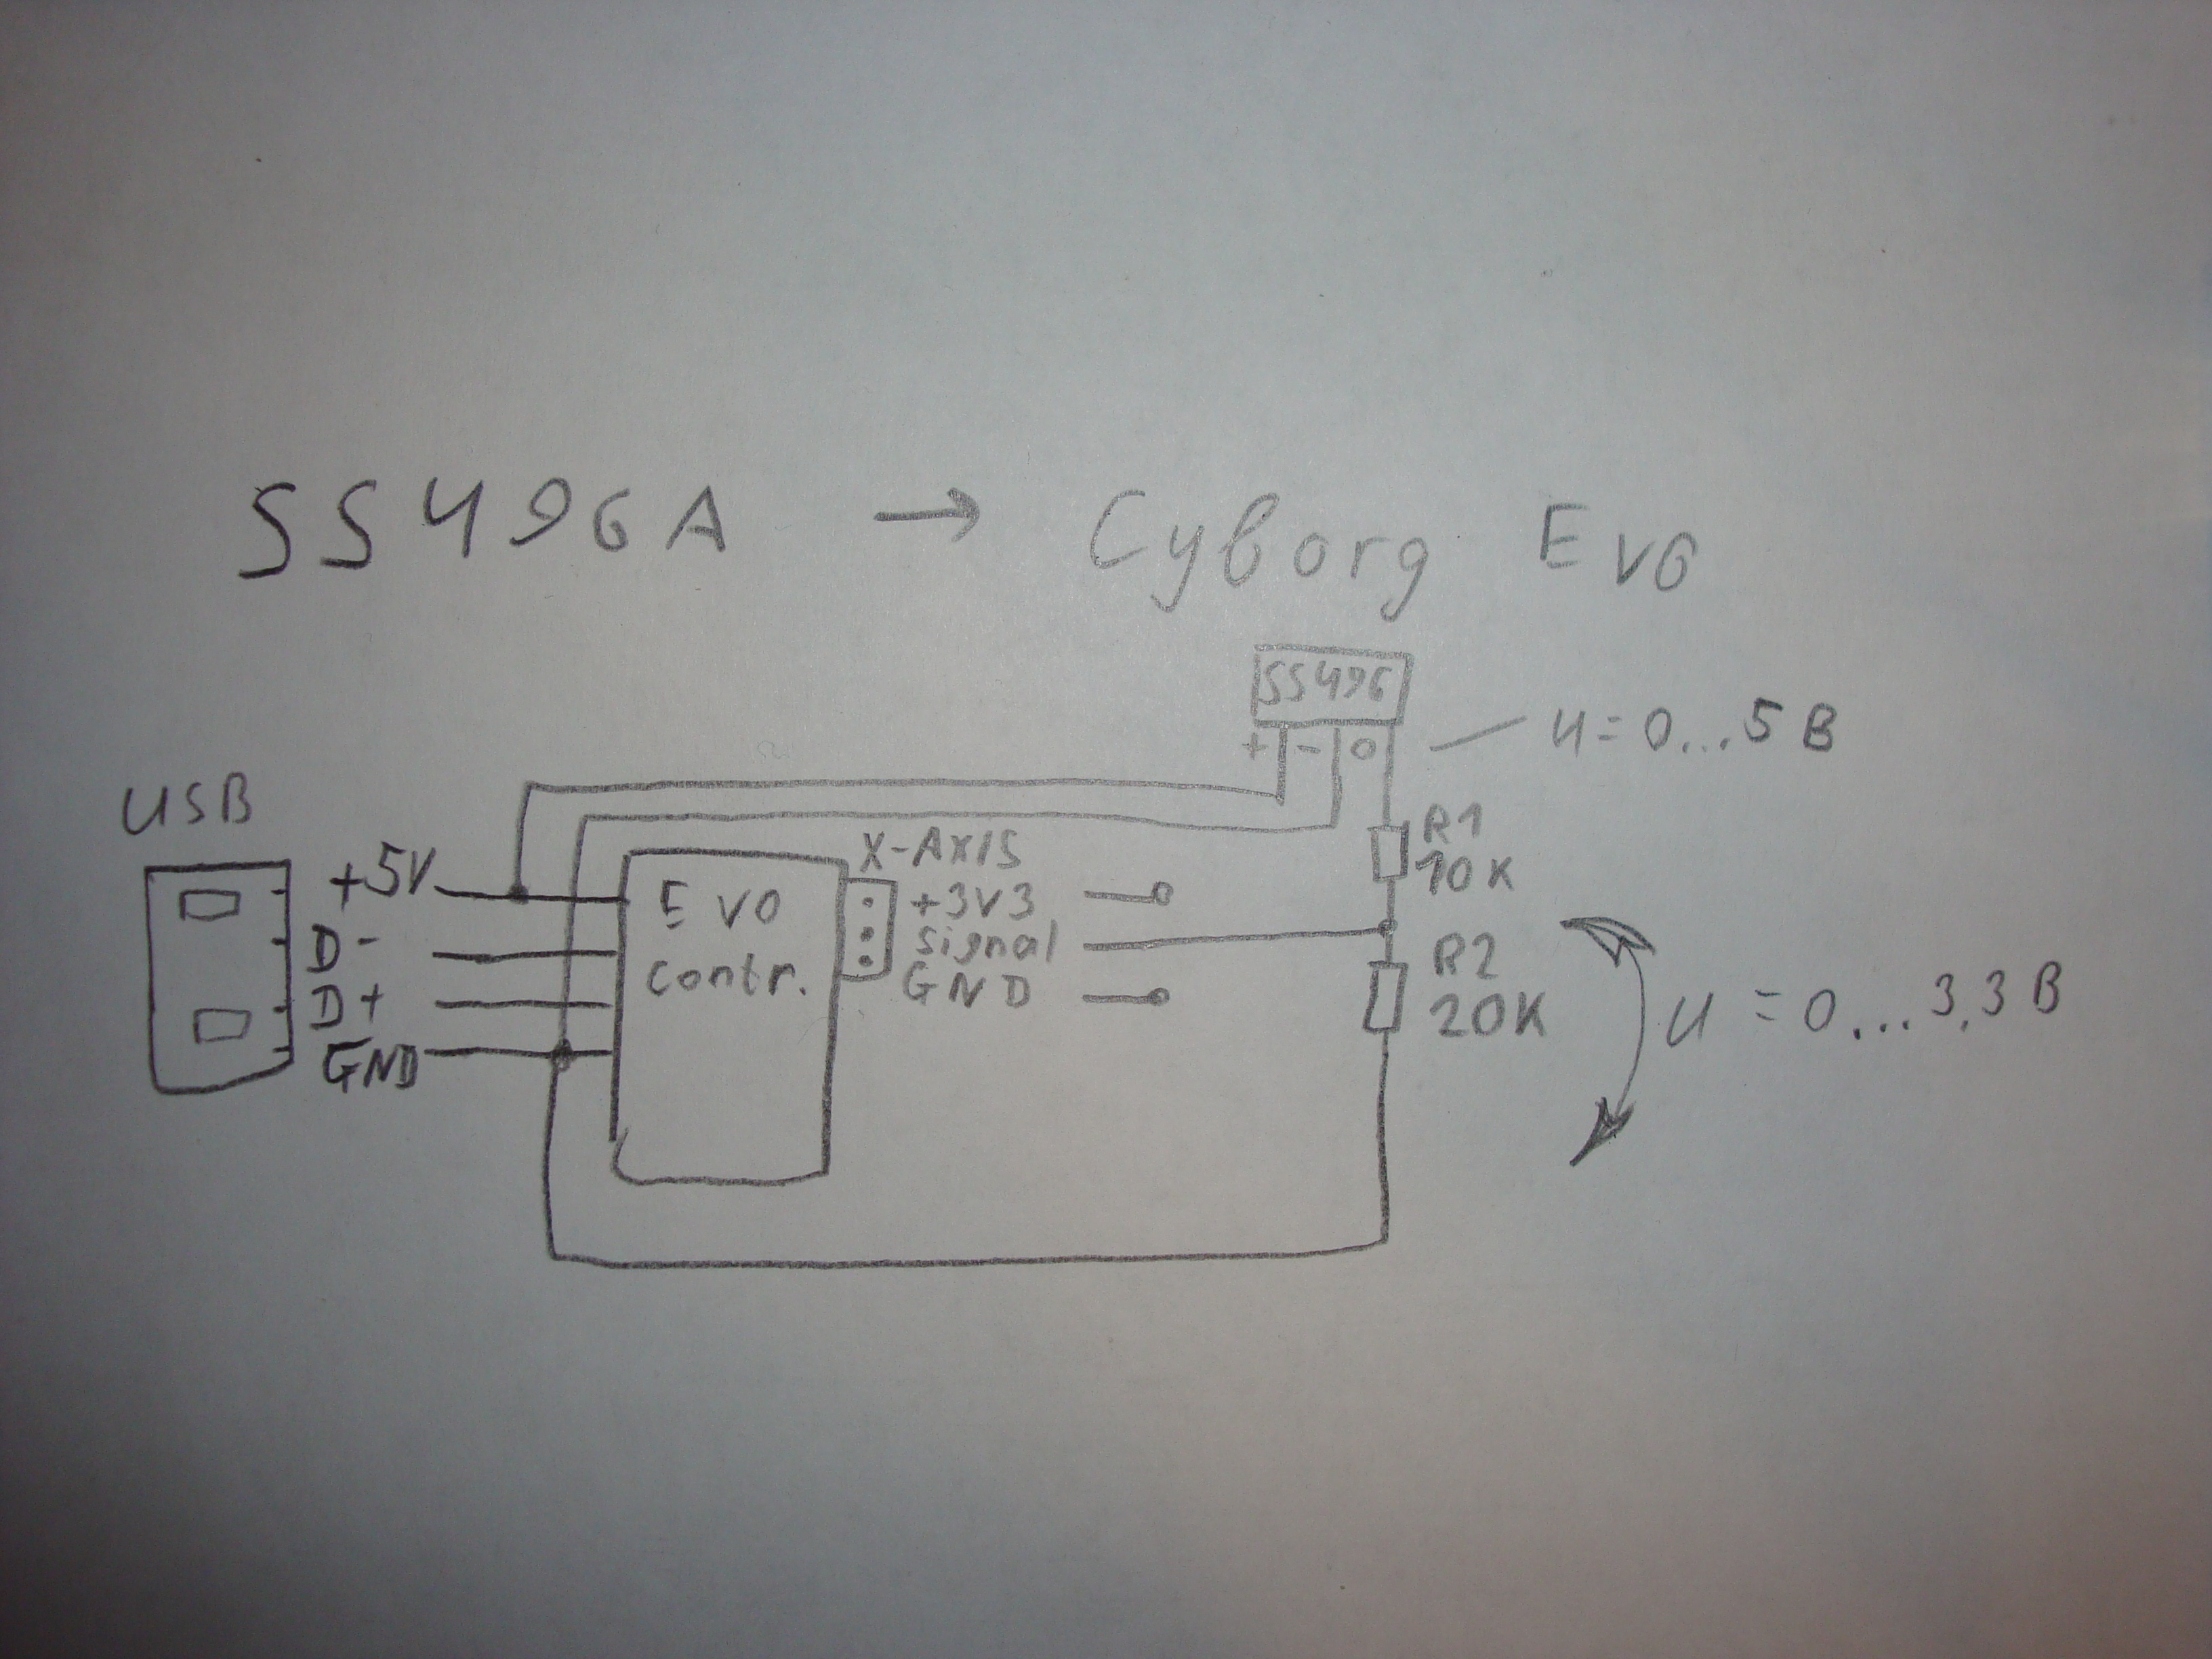 SS496A → Cyborg Evo
SS496
+ - o
U = 0...5В
USB
+5V
D-
D+
GND
Evo
contr.
X-AXIS
+3V3
signal
GND
R1
10K
R2
20K
U = 0...3,3В